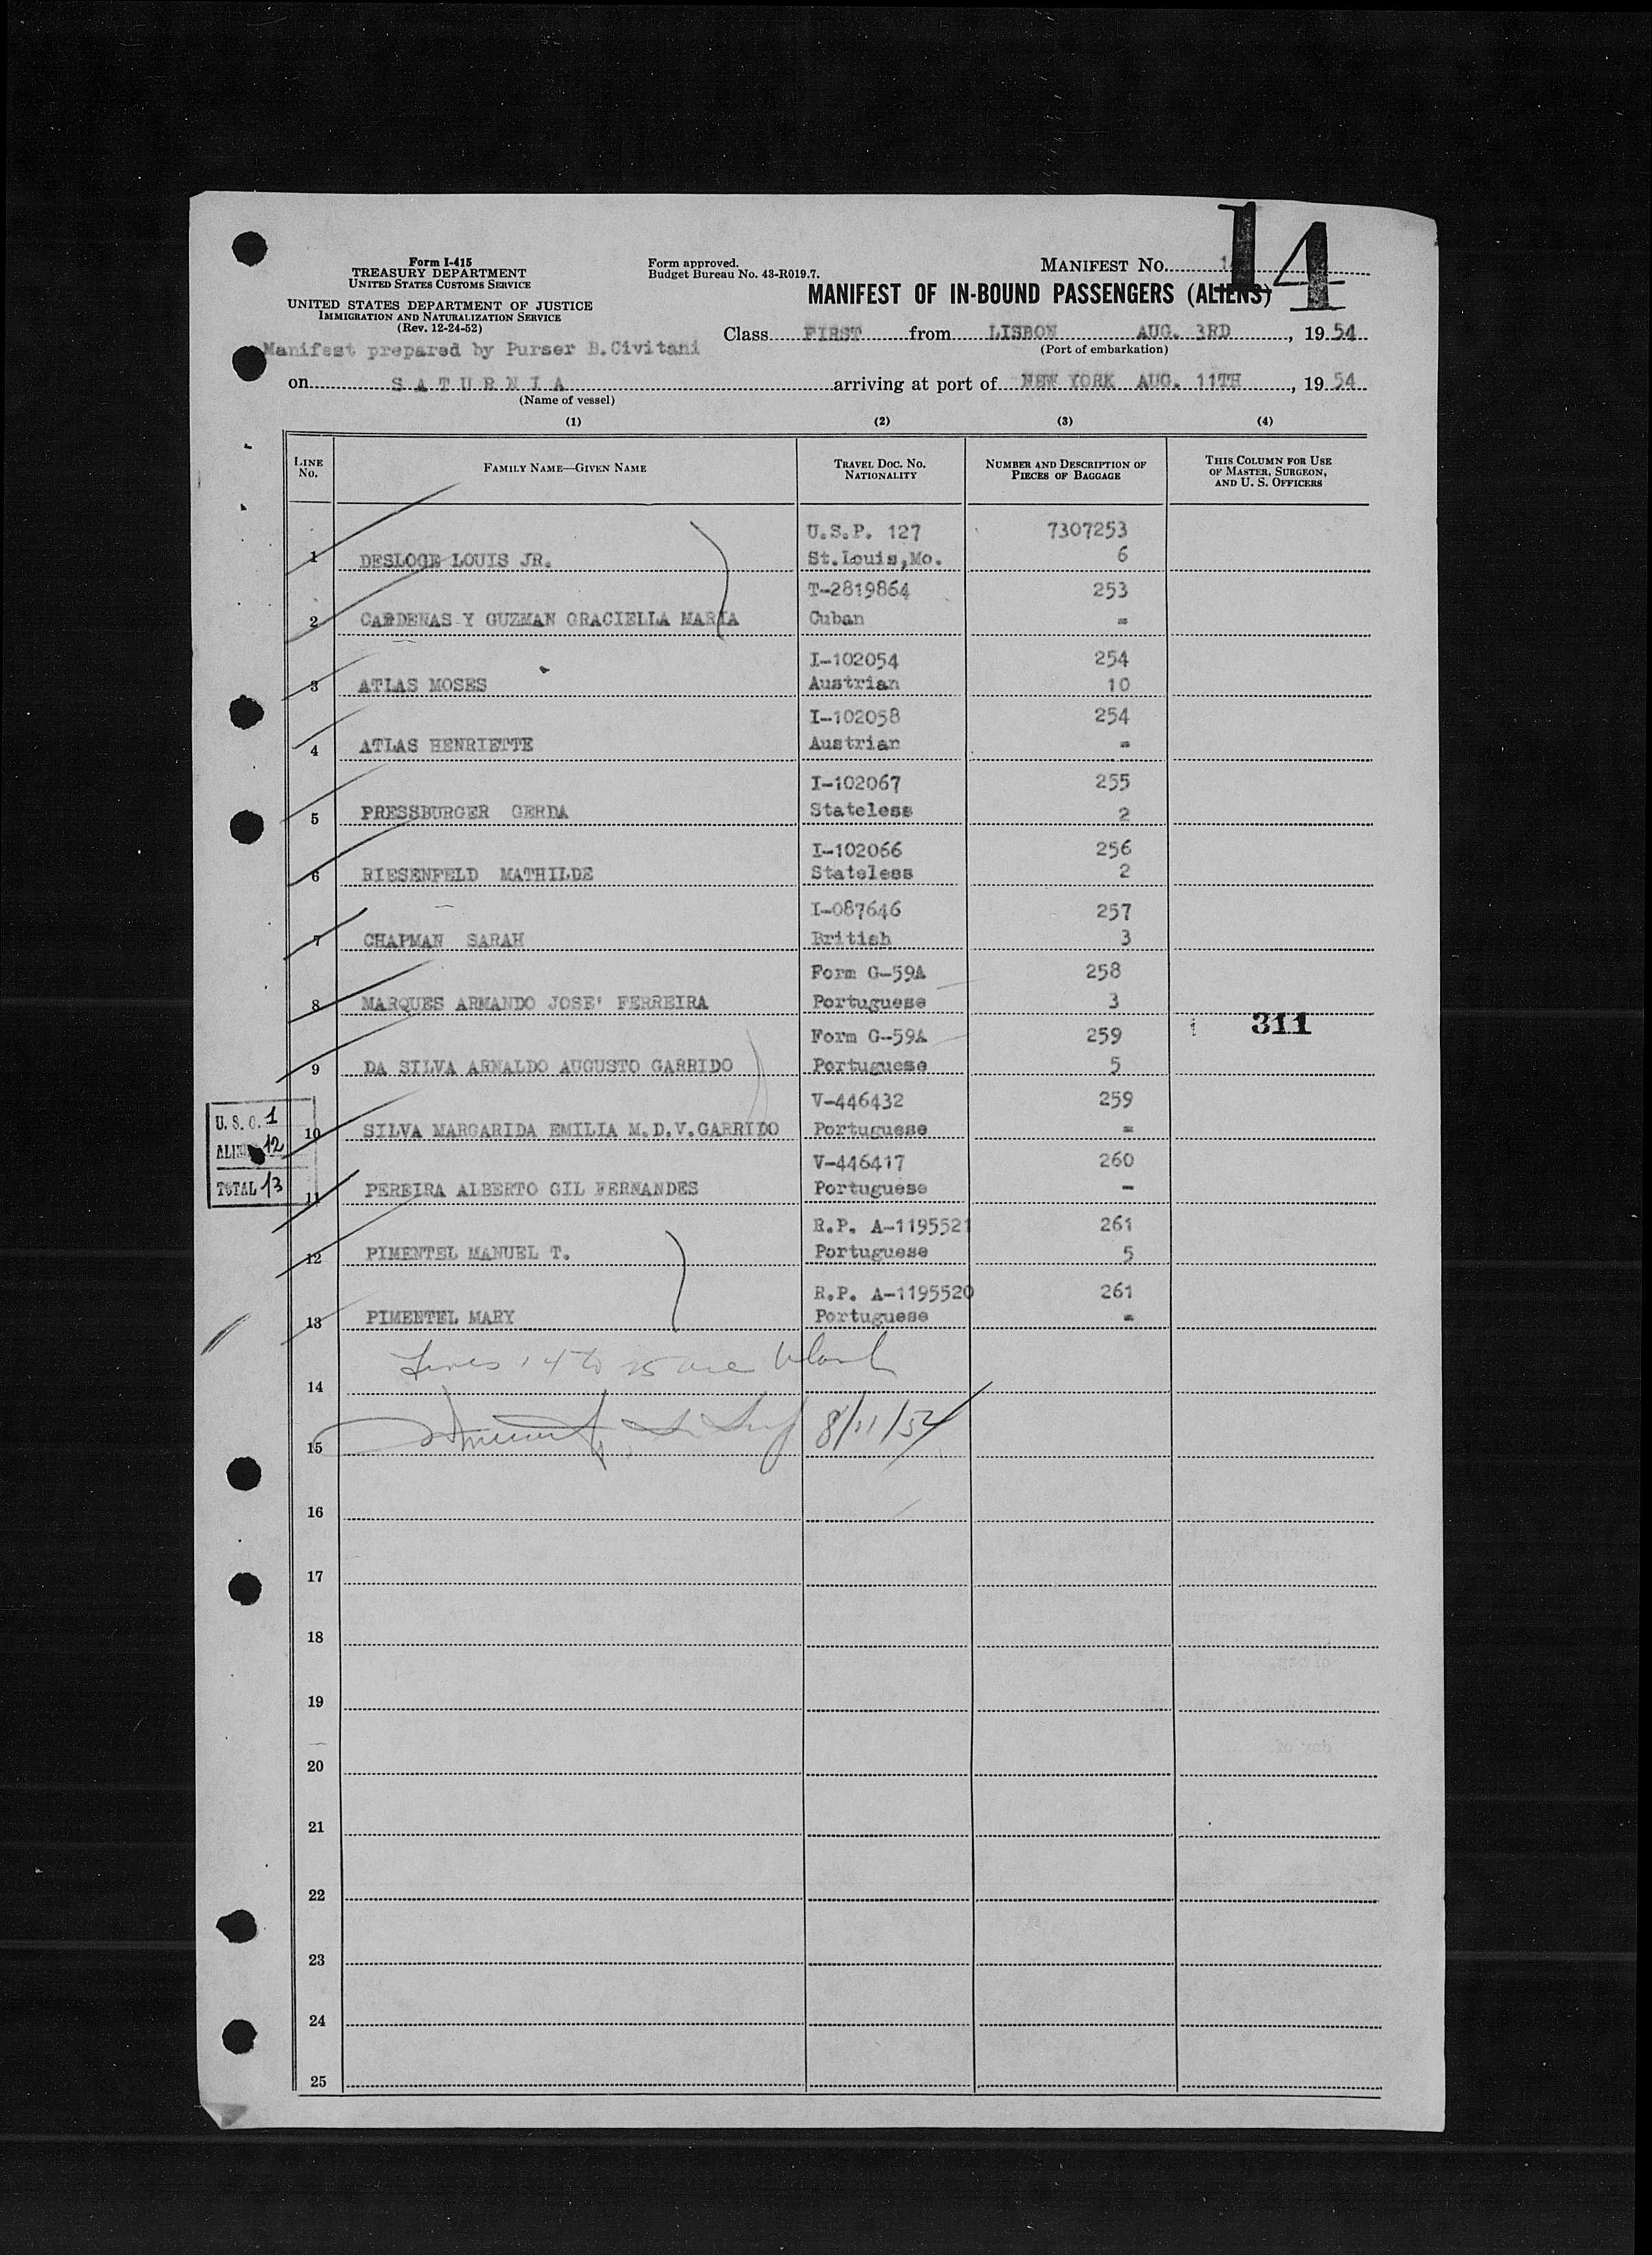 14
Form I-415
TREASURY DEPARTMENT
UNITED STATES CUSTOMS SERVICE
UNITED STATES DEPARTMENT OF JUSTICE
IMMIGRATION AND NATURALIZATION SERVICE
(Rev. 12-24-52)
Form approved.
Budget Bureau No. 43-R019.7.
MANIFEST NO.
MANIFEST OF IN-BOUND PASSENGERS (ALIENS)
Class FIRST from LISBON AUG. 3RD, 19 54
(Port of embarkation)
Manifest prepared by Purser B.Civitani
on S A T U R N I A arriving at port of NEW YORK AUG. 11TH, 19 54
(Name of vessel)
(1) (2) (3) (4)
LINE NO. FAMILY NAME—GIVEN NAME TRAVEL DOC. NO. NATIONALITY NUMBER AND DESCRIPTION OF PIECES OF BAGGAGE THIS COLUMN FOR USE OF MASTER, SURGEON, AND U. S. OFFICERS
U.S.P. 127 7307253
1 DESLOGE LOUIS JR. St.Louis,Mo. 6
T-2819864 253
2 CARDENAS Y GUZMAN GRACIELLA MARIA Cuban -
I-102054 254
3 ATLAS MOSES Austrian 10
I-102058 254
4 ATLAS HENRIETTE Austrian -
I-102067 255
5 PRESSBURGER GERDA Stateless 2
I-102066 256
6 RIESENFELD MATHILDE Stateless 2
I-087646 257
7 CHAPMAN SARAH British 3
Form G-59A 258
8 MARQUES ARMANDO JOSE' FERREIRA Portuguese 3
311
Form G-59A 259
9 DA SILVA ARNALDO AUGUSTO GARRIDO Portuguese 5
V-446432 259
10 SILVA MARGARIDA EMILIA M.D.V.GARRIDO Portuguese -
U. S. C. 1
ALIEN 12
TOTAL 13
V-446417 260
11 PEREIRA ALBERTO GIL FERNANDES Portuguese -
R.P. A-1195521 261
12 PIMENTEL MANUEL T. Portuguese 5
R.P. A-1195520 261
13 PIMENTEL MARY Portuguese -
Lines 14 to 25 are blank
14
15 8/11/54
16
17
18
19
20
21
22
23
24
25